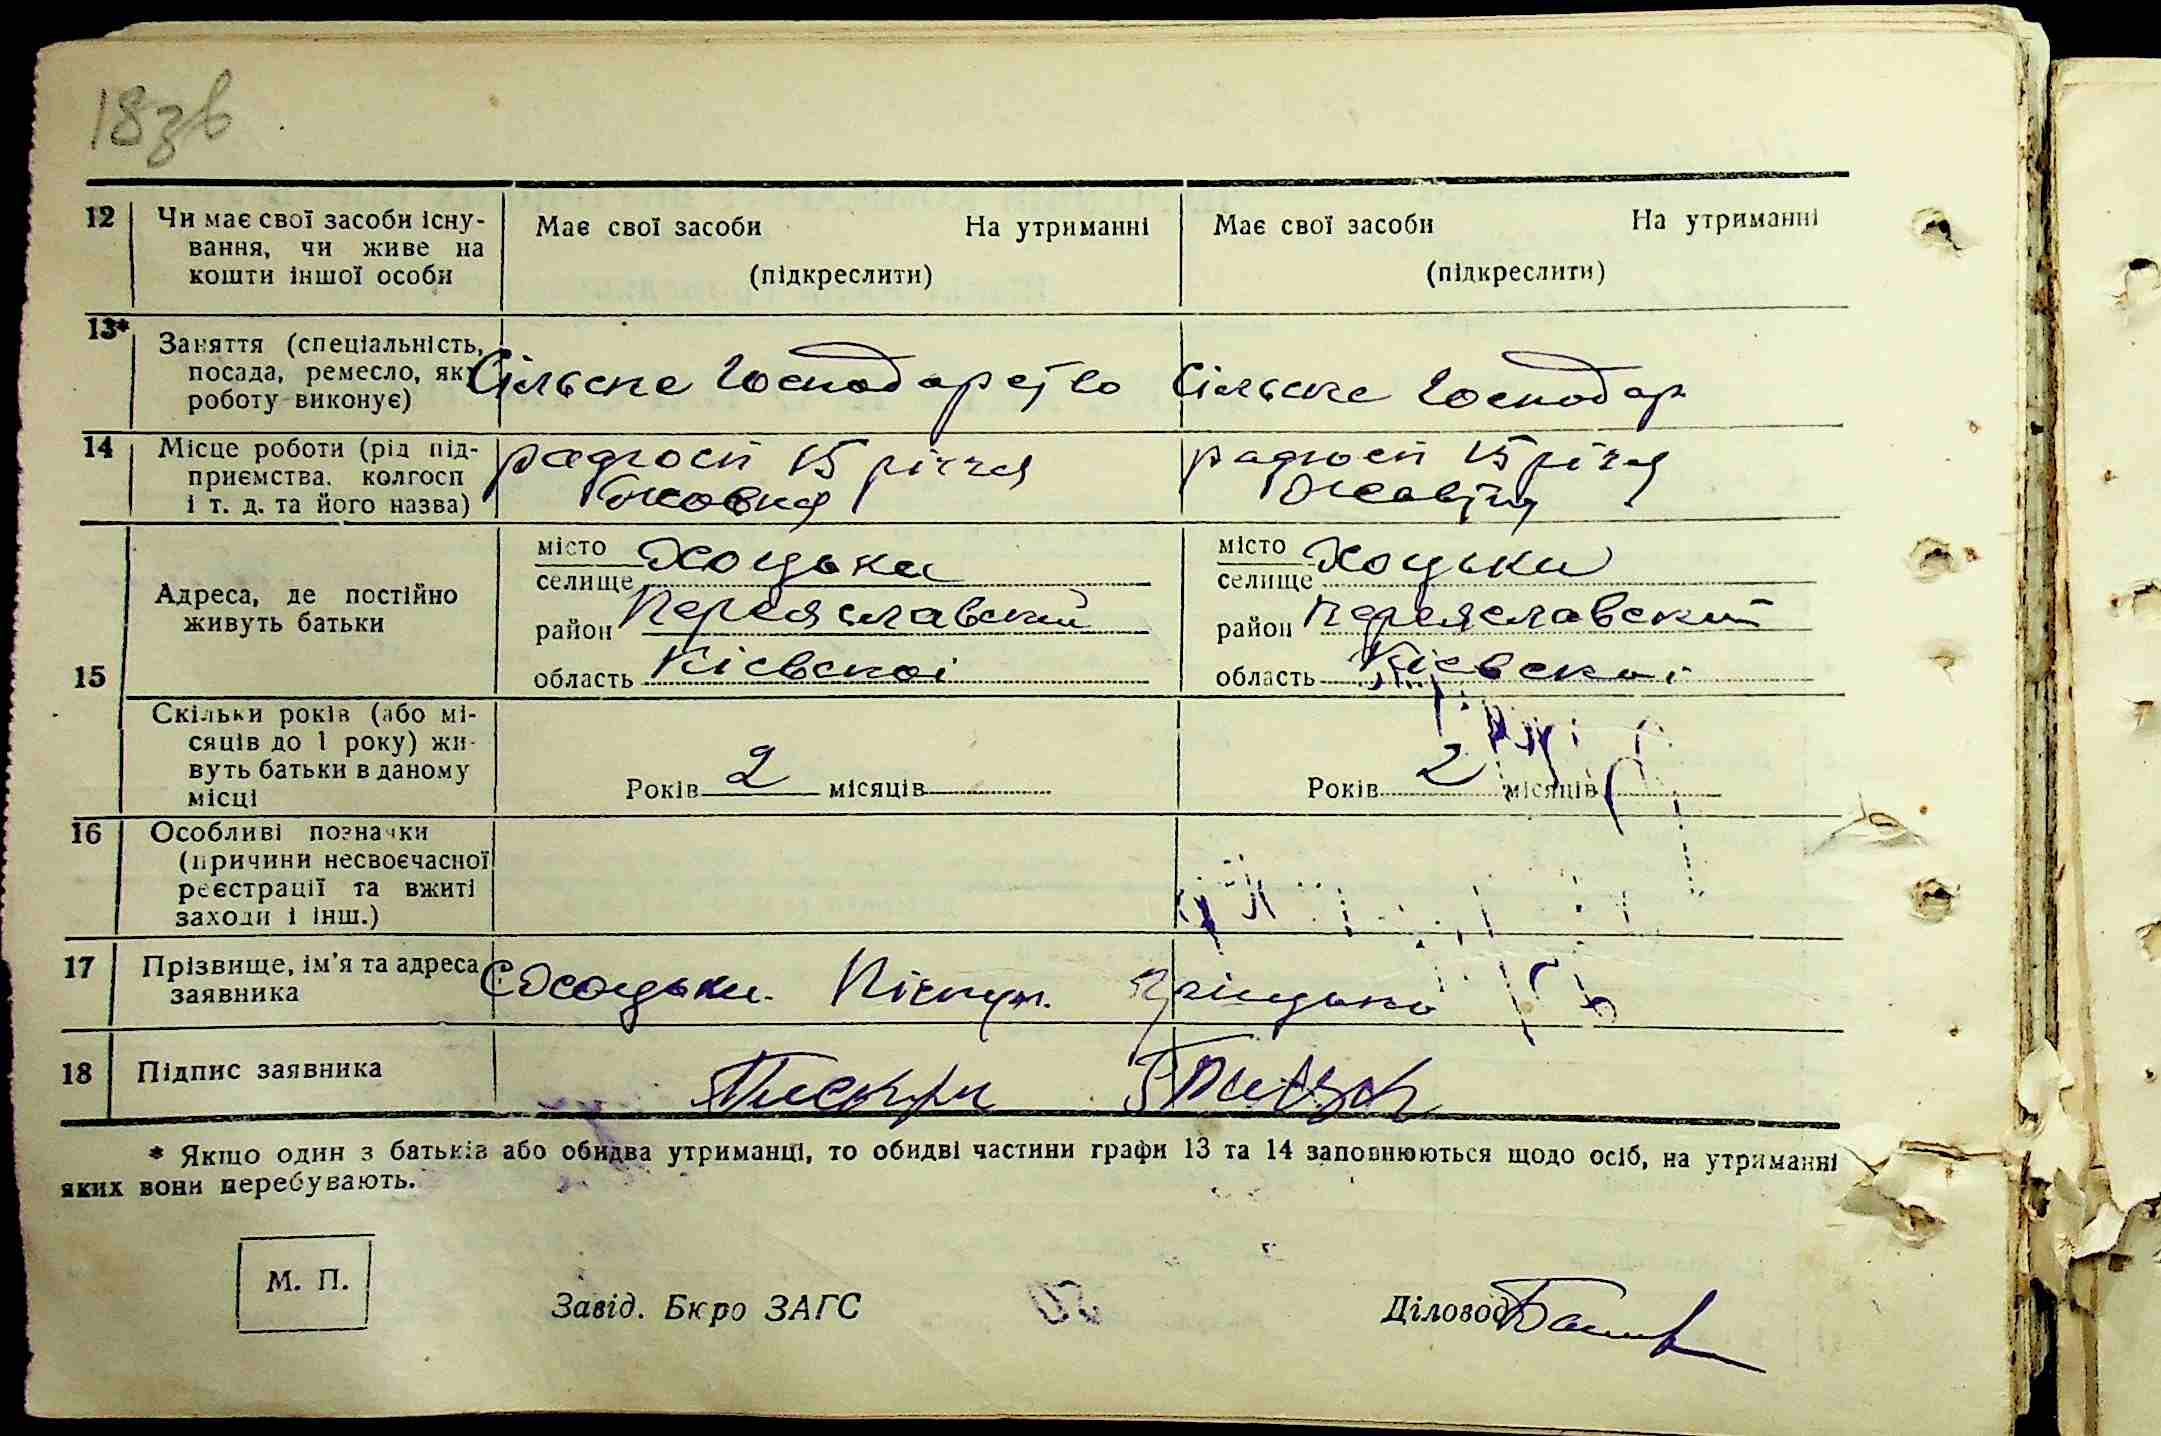 18зв
12 Чи має свої засоби існу-
вання, чи живе на
кошти іншої особи
Має свої засоби На утриманні
(підкреслити)
Має свої засоби На утриманні
(підкреслити)
13* Заняття (спеціальність,
посада, ремесло, яку
роботу виконує)
Сільске Господарство
Сільське Господар
14 Місце роботи (рід під-
приємства, колгосп
і т. д. та його назва)
радгосп 15 річчя
Жовтня
радгосп 15 річя
Жовтня
15 Адреса, де постійно
живуть батьки
місто
селище Хоцьки
район Переяславский
область Кієвскоі
місто
селище Хоцьки
район Переяславский
область Кієвскоі
Скільки років (або мі-
сяців до 1 року) жи-
вуть батьки в даному
місці
Років 2 місяців
Років 2 місяців
16 Особливі позначки
(причини несвоєчасної
реєстрації та вжиті
заходи і інш.)
17 Прізвище, ім'я та адреса
заявника
С Хоцьки.
18 Підпис заявника
* Якщо один з батьків або обидва утриманці, то обидві частини графи 13 та 14 заповнюються щодо осіб, на утриманні
яких вони перебувають.
М. П.
Завід. Бюро ЗАГС
Діловод